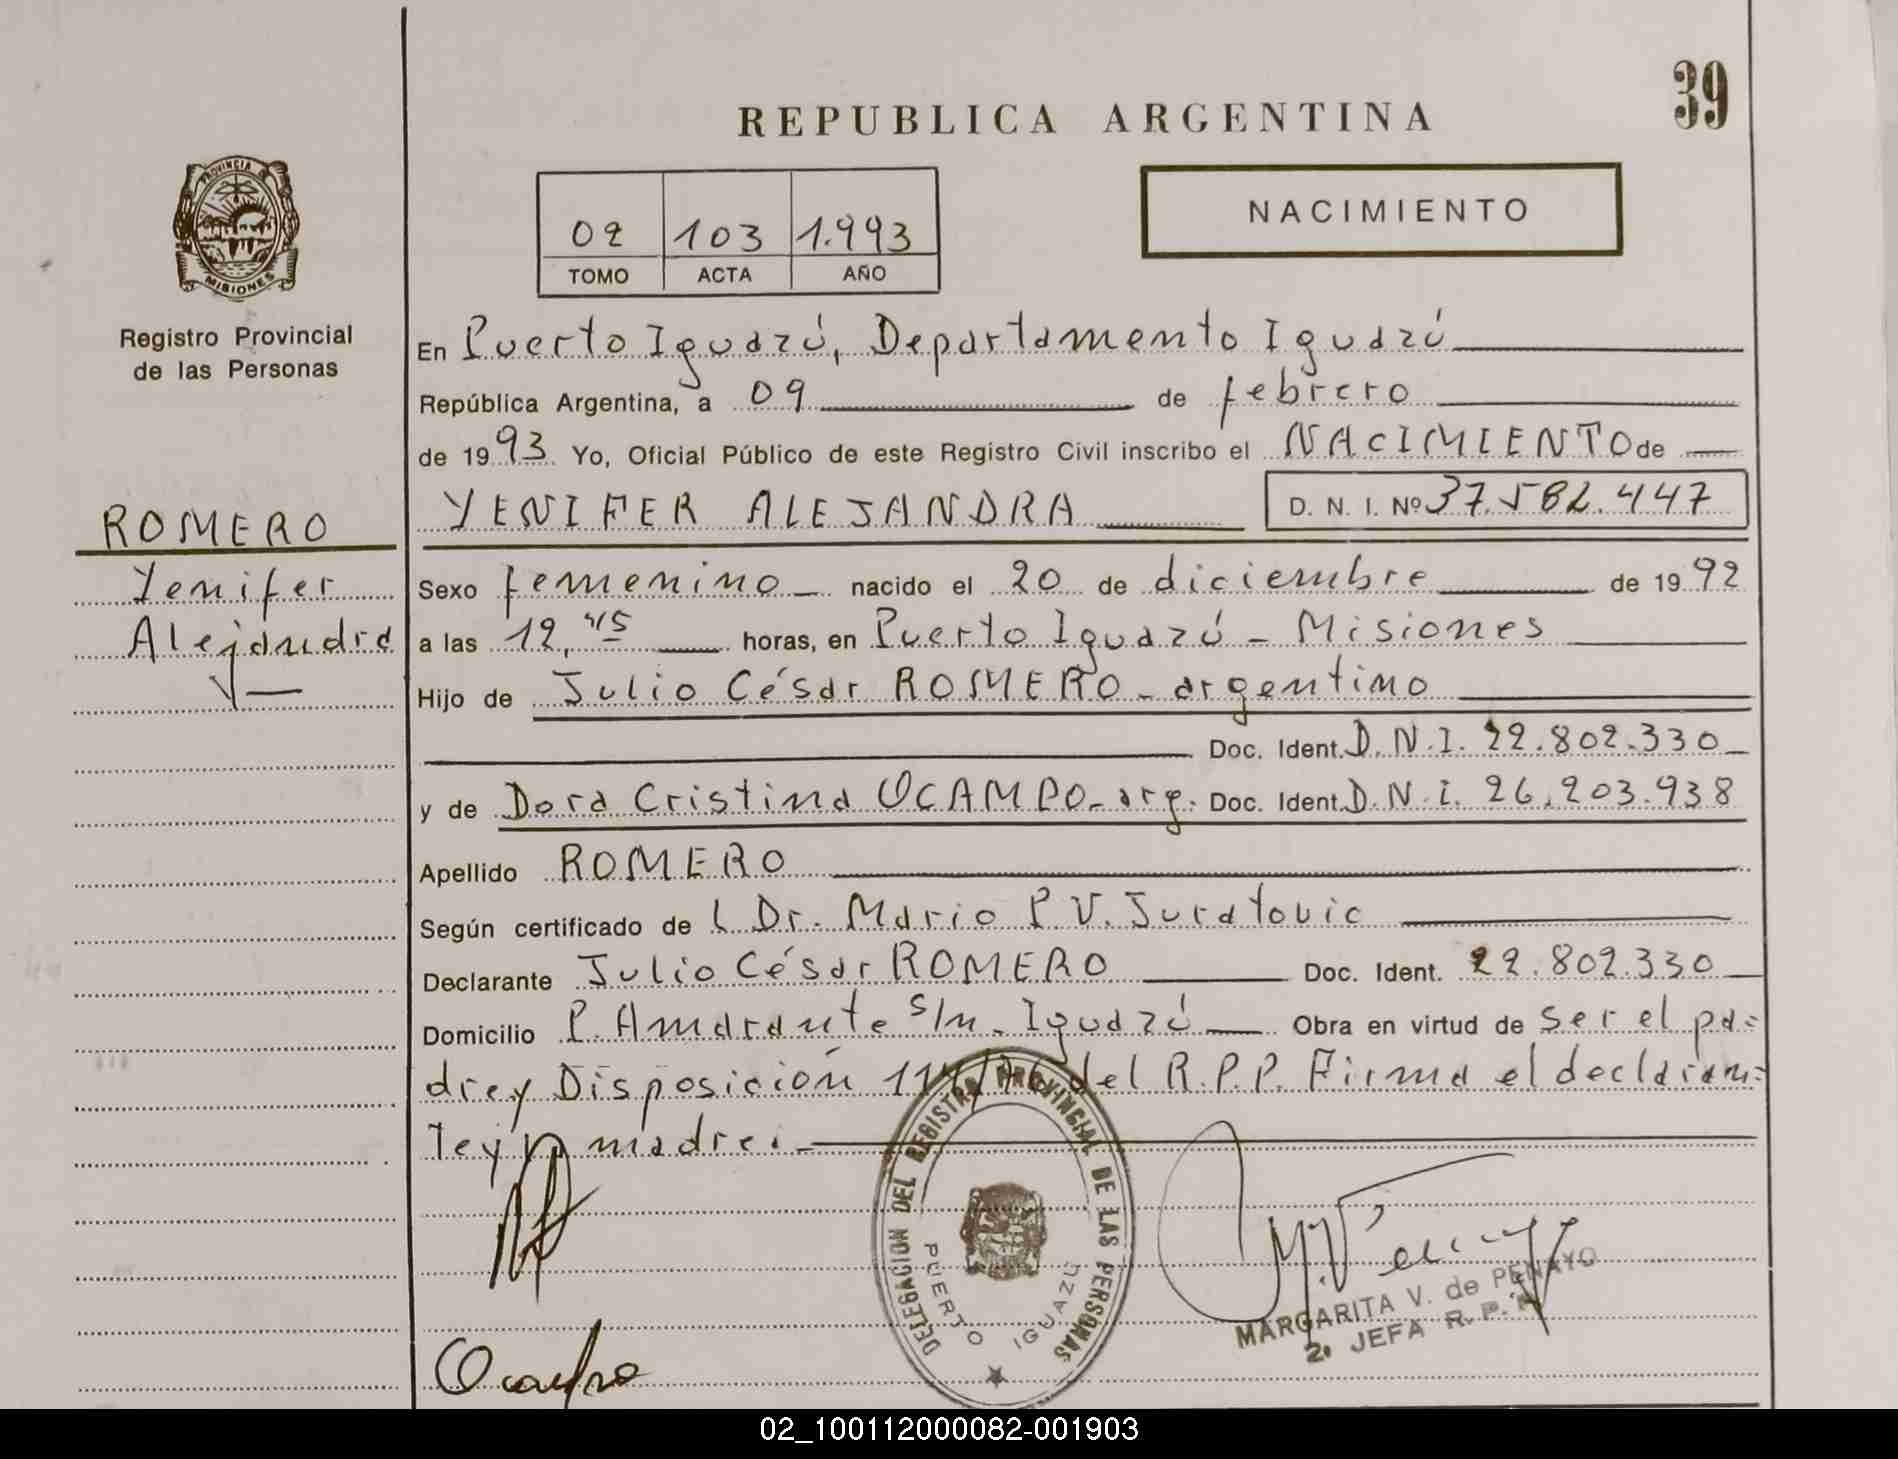 39
REPUBLICA ARGENTINA
PROVINCIA DE MISIONES
NACIMIENTO
02 103 1.993
TOMO ACTA AÑO
Registro Provincial
de las Personas
En Puerto Iguazú, Departamento Iguazú
República Argentina, a 09 de febrero
de 1993 Yo, Oficial Público de este Registro Civil inscribo el NACIMIENTO de
YENIFER ALEJANDRA D. N. I. Nº 37.582.447
ROMERO
Yenifer
Alejandra
Sexo femenino nacido el 20 de diciembre de 1992
a las 12,45 horas, en Puerto Iguazú - Misiones
Hijo de Julio César ROMERO - argentino
Doc. Ident. D.N.I. 22.802.330
y de Dora Cristina OCAMPO - arg. Doc. Ident. D.N.I. 26.203.938
Apellido ROMERO
Según certificado de l Dr. Mario P. V. Juratovic
Declarante Julio César ROMERO Doc. Ident. 22.802.330
Domicilio P. Amarante s/n. Iguazú Obra en virtud de ser el pa=
dre y Disposición del R.P.P. Firma el declaran=
te y madre.
DELEGACION DEL REGISTRO PROVINCIAL DE LAS PERSONAS
PUERTO IGUAZU
Ocampo
MARGARITA V. de PENAYO
2ª JEFA R. P. P.
02_100112000082-001903